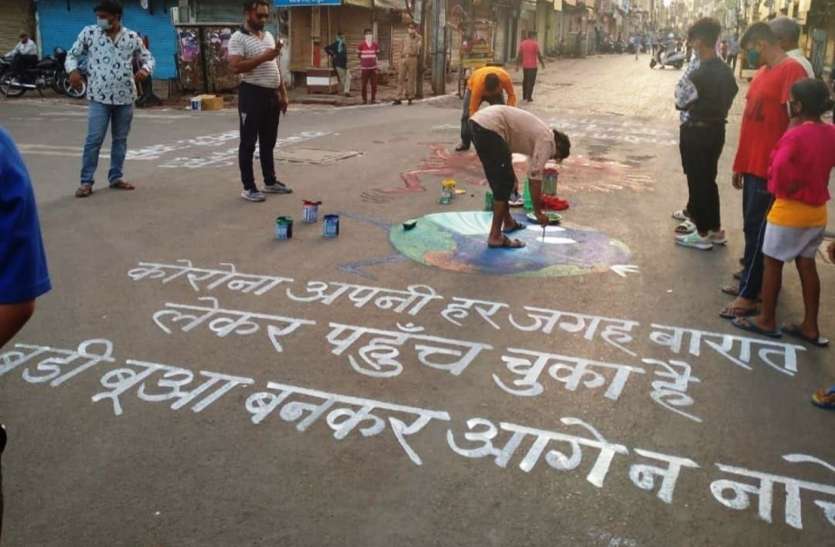 कोरोना अपनी हर जगह बारात
लेकर पहुँच चुका है
बडी बूआ बनकर आगे न